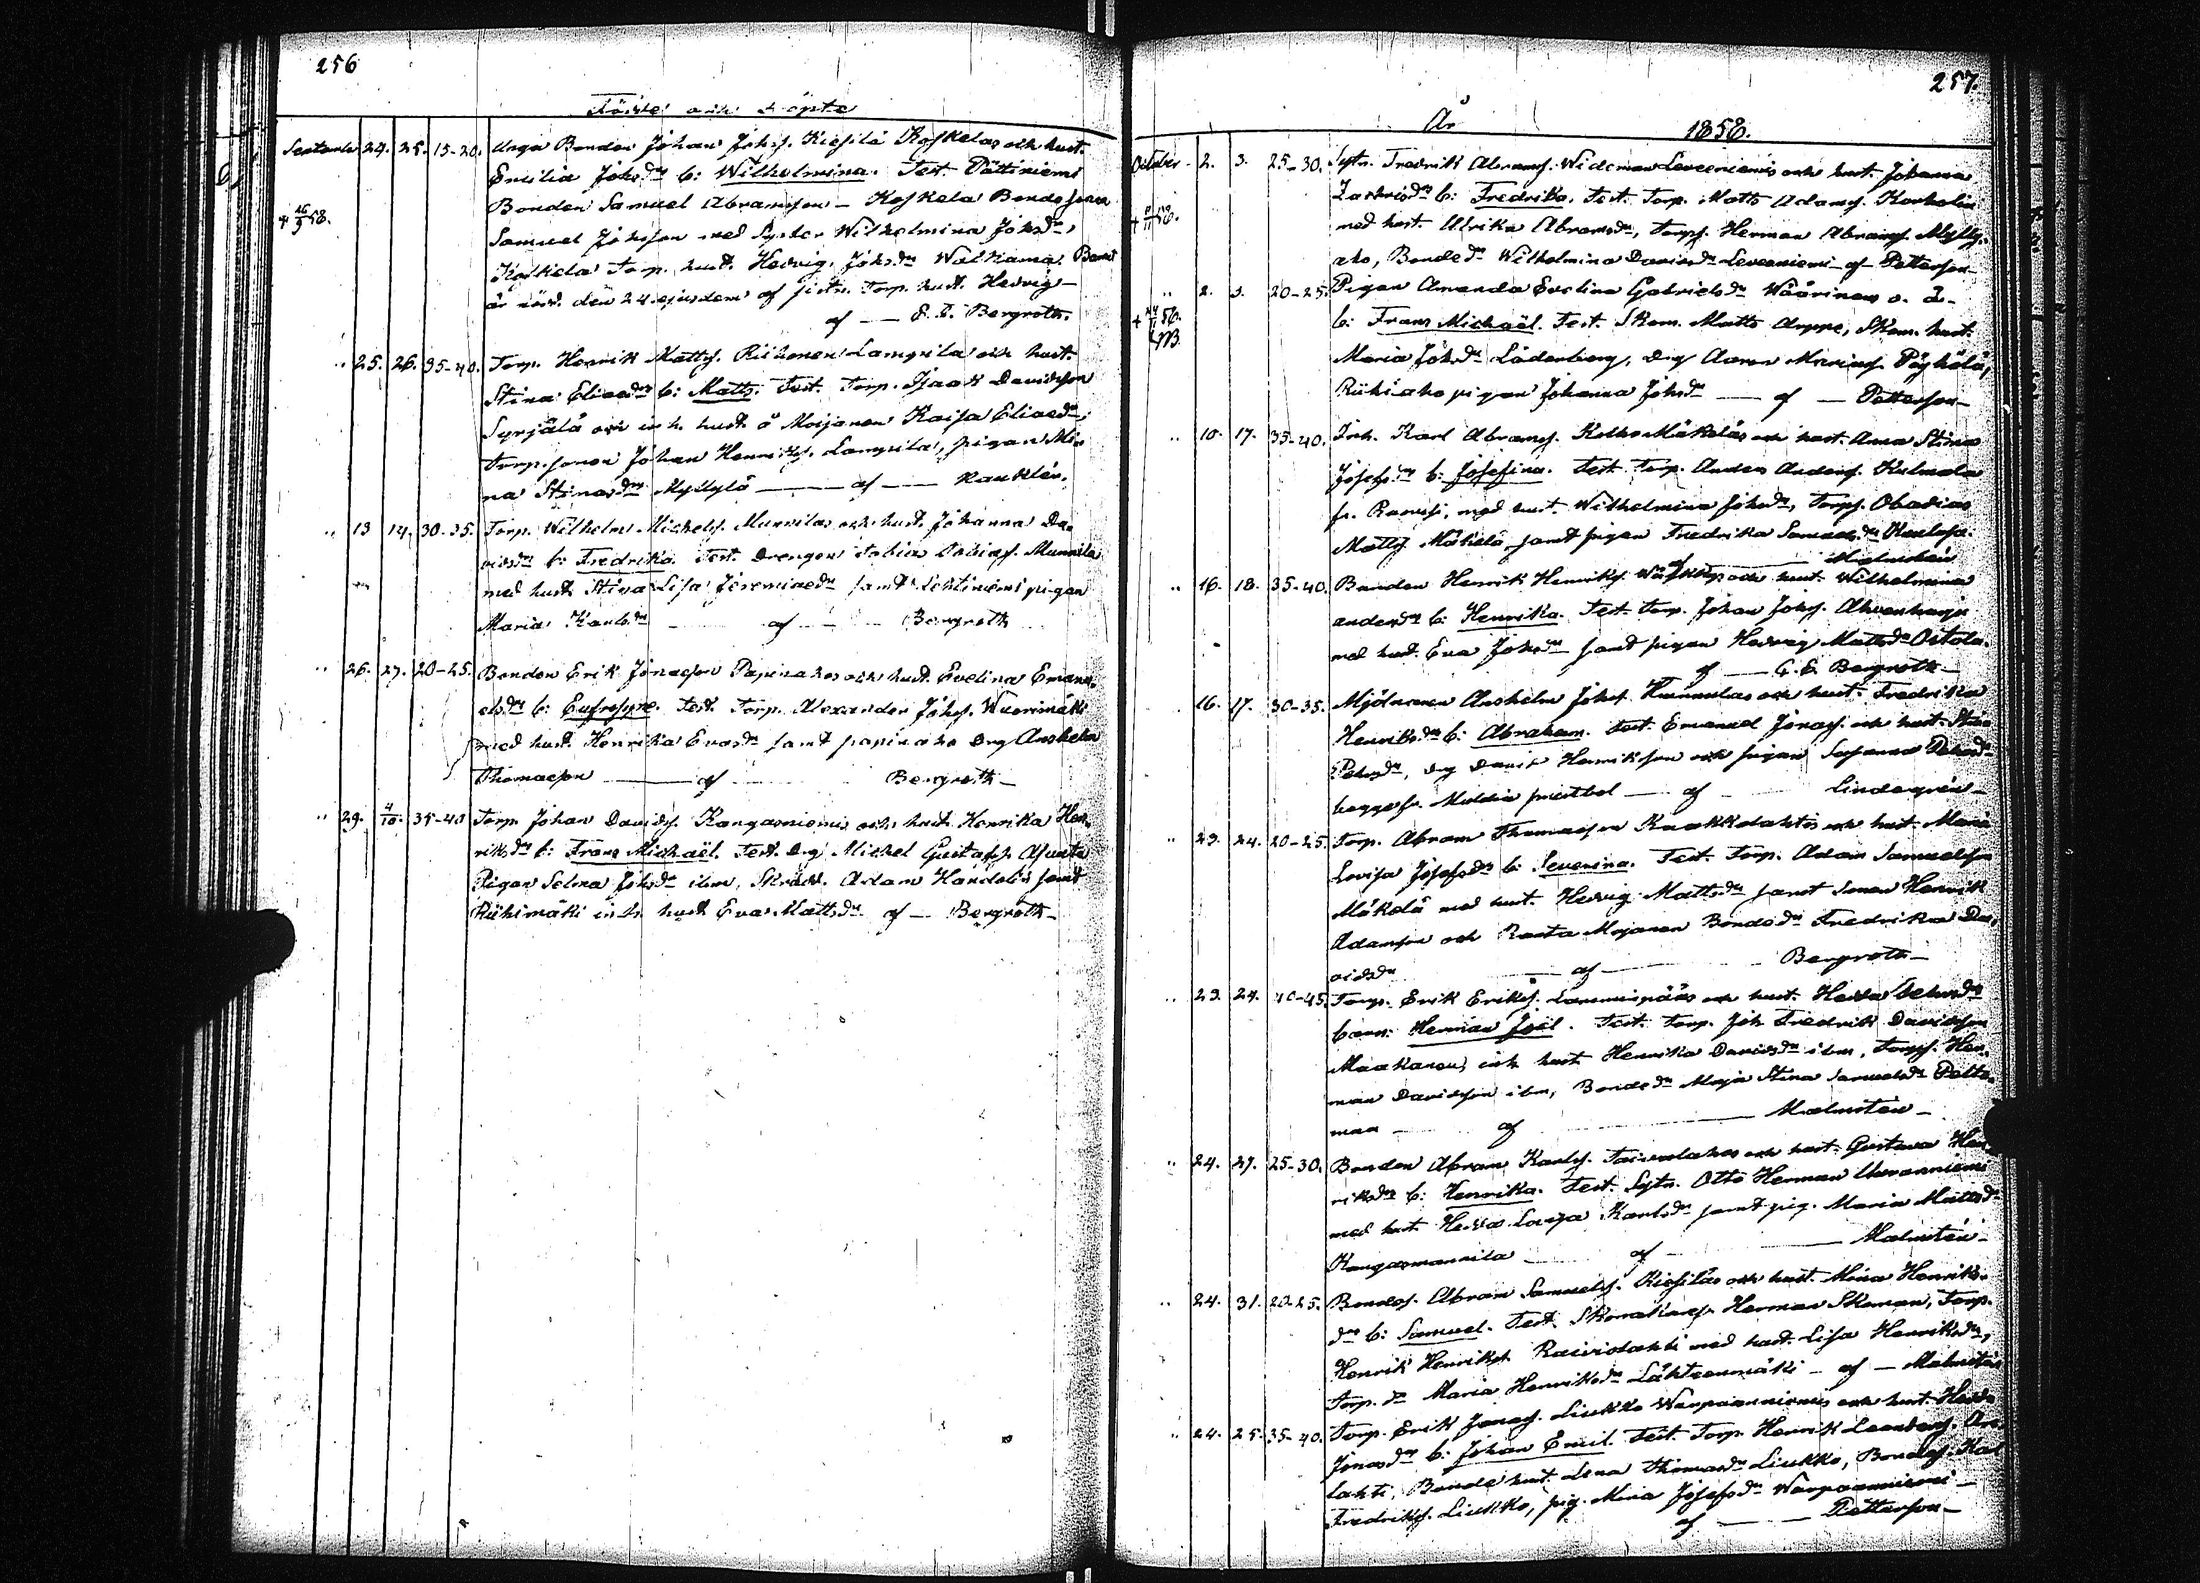 256
Födde och döpte
Septemb. 24. 25. 15-20. Unga Bonden Johan Johss. Kiesilä Koskelas och hust.
Emilia Johsdr b: Wilhelmina. Test. Pöttiniemi
+ 26/9 58. Bonden Samuel Abramsson - Koskela Bondesonen
Samuel Johsson med Syster Wilhelmina Johsdr,
Koskela Torp. hust. Hedvig Johsdr Walkama. Barnet
är född den 24 ejusdem af
af — E. E. Bergroth.
" 25. 26. 35-40. Torp. Henrik Mattss. Riihonen Lampila och hust.
Stina Eliasdr b: Matts. Test. Torp. Isaak Davidsson
Syrjälä och inh. hust. Kaisa Eliasdr,
Torp.sonen Johan Henrikss. Lampila, pigan Mi-
na Myllylä — af —
" 13 14. 30-35. Torp. Wilhelm Michelss. Munnilas och hust. Johanna Da-
vidsdr b: Fredrika. Test. Drengen Tobias Tobiass. Munnila
med hust. Stina Lisa Jeremiaedr samt Lehtiniemi pigan
Maria Karlsdr — af — Bergroth
" 26. 27. 20-25. Bonden Erik Jonasson Papinahos och hust. Evelina Emanu-
elsdr b: Eufrosyne. Test. Torp. Alexander Johss. Wuorimäki
med hust. Henrika Evasdr samt papinaho drg Anshelm
Thomasson — af — Bergroth
" 29. 4/10. 35-40 Torp. Johan Davidss. Kangasniemis och hust. Henrika Hen-
riksdr b: Frans Michaël. Test. drg Michel Gustafss. Asunta
Pigan Selma Johsdr ibm, Skrädd. Adam Handolin samt
Riihimäki inh. hust. Eva Mattsdr af — Bergroth
257.
År 1858.
October 2. 3. 25-30. Sytn. Fredrik Abramss. Wideman Leveeniemis och hust. Johanna
Zachrisdr b: Fredrika. Test. Torp. Matts Adamss. Korholin
med hust. Ulrika Abramsdr, Torps. Herman Abramss. Mylly-
aho, Bondedr Wilhelmina Davidsdr Leveeniemi af Petterson
" 2. 3. 20-25. Pigan Amanda Evelina Gabrielsdr Wäärinen o. ä.
b: Frans Michaël. Test. Skom. Matts Arppe, Skom. hust.
Maria Johsdr Löderberg, drg Aaron Mariass. Pöyhölä,
Riihiaho pigan Johanna Johsdr — af — Petterson
" 10. 17. 35-40. Inh. Karl Abramss. Kotko Mäkeläs och hust. Anna Stina
Josefsdr b: Josefina. Test. Torp. Anders Anderss. Kulmala
fr. med hust. Wilhelmina Johsdr, Torps. Obadias
Mattss. Mäkelä, samt pigan Fredrika Samuelsdr
af — Malmstén
" 16. 18. 35-40. Bonden Henrik Henrikss. och hust. Wilhelmina
Andersdr b: Henrika. Test. Torp. Johan Johss. Ahvenharju
med hust. Eva Johsdr samt pigan Hedvig Mattsdr
af — E. E. Bergroth
" 16. 17. 30-35. Mjölnaren Anshelm Johss. Hunnulas och hust. Fredrika
Henriksdr b: Abraham. Test. Emanuel Jonass. och hust. Stina
Petersdr, drg David Henriksson och pigan Susanna
begge fr. Muldia prestbol — af — Lindegrén
" 23. 24. 20-25. Torp. Abram Thomasson Kaakkolahtis och hust. Maria
Lovisa Josefsdr b: Severina. Test. Torp. Adam Samuelsson
Mäkelä med hust. Hedvig Mattsdr samt sonen Henrik
Adamsson och Ranta Mojanen Bondedr Fredrika Da-
vidsdr — af — Bergroth
" 23. 24. 40-45. Torp. Erik Erikss. Lamminpääs och hust. Hedda
barn: Herman Joel. Test. Torp. Joh. Fredrik Davidsson
Maakanen, inh. hust. Henrika Davidsdr ibm, Torps. Her-
man Davidsson ibm, Bondedr Maja Stina Samuelsdr Pelto-
maa — af — Malmstén
" 24. 27. 25-30. Bonden Abram Karlss. och hust. Gustava Hen-
riksdr b: Henrika. Test. Sytn. Otto Herman
med hust. Hedda Lovisa Karlsdr samt pig. Maria Mattsdr
Kangasmannila — af — Malmstén
" 24. 31. 20-25. Bondes. Abram Samuelss. Kiesiläs och hust. Mina Henriks-
dr b: Samuel. Test. Skomakares. Herman Skoman, Torp.
Henrik Henrikss. Raiviolahti med hust. Lisa Henriksdr,
Torp. dr Maria Henriksdr Lähteenmäki — af — Malmstén
" 24. 25. 35-40. Torp. Erik Jonass. Liukko Warpaanniemis och hust. Hedda
Jonasdr b: Johan Emil. Test. Torp. Henrik
lahti, Bonde hust. Lena Thomasdr Liukko, Bondes. Karl
Fredrikss. Liukko, pig. Mina Josefsdr Warpaanniemi
af — Petterson